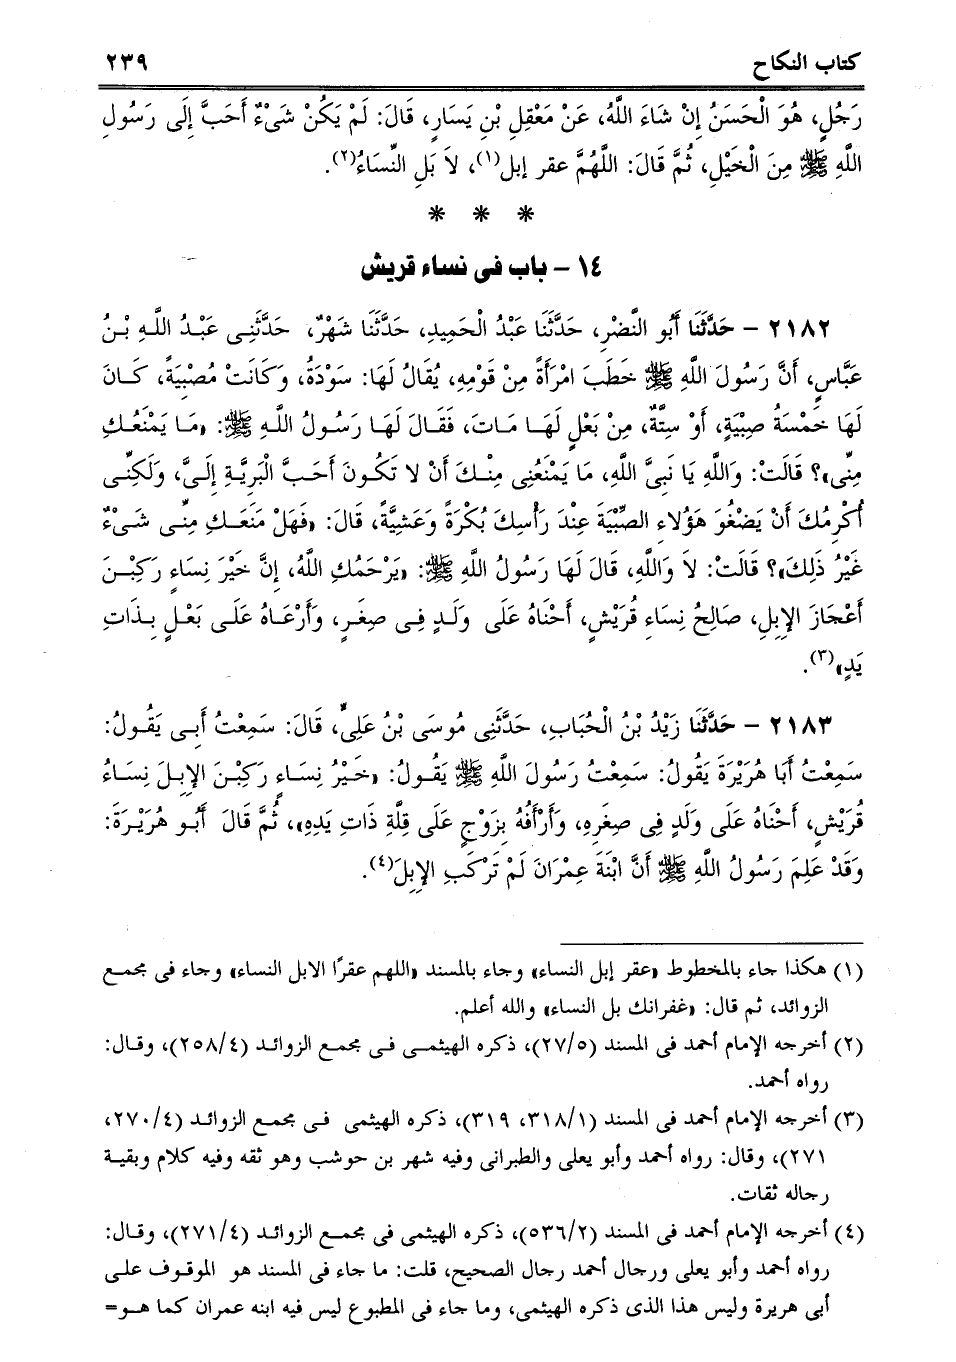 كتاب النكاح ٢٣٩
رَجُلٍ، هُوَ الْحَسَنُ إِنْ شَاءَ اللَّهُ، عَنْ مَعْقِلِ بْنِ يَسَارٍ، قَالَ: لَمْ يَكُنْ شَىْءٌ أَحَبَّ إِلَى رَسُولِ
اللَّهِ ﷺ مِنَ الْخَيْلِ، ثُمَّ قَالَ: اللَّهُمَّ عقر إبل(١)، لاَ بَلِ النِّسَاءُ(٢).
* * *
١٤ - باب فى نساء قريش
٢١٨٢ - حَدَّثَنَا أَبُو النَّضْرِ، حَدَّثَنَا عَبْدُ الْحَمِيدِ، حَدَّثَنَا شَهْرٌ، حَدَّثَنِى عَبْدُ اللَّهِ بْنُ
عَبَّاسٍ، أَنَّ رَسُولَ اللَّهِ ﷺ خَطَبَ امْرَأَةً مِنْ قَوْمِهِ، يُقَالُ لَهَا: سَوْدَةُ، وَكَانَتْ مُصْبِيَةً، كَانَ
لَهَا خَمْسَةُ صِبْيَةٍ، أَوْ سِتَّةٌ، مِنْ بَعْلٍ لَهَا مَاتَ، فَقَالَ لَهَا رَسُولُ اللَّهِ ﷺ: «مَا يَمْنَعُكِ
مِنِّى»؟ قَالَتْ: وَاللَّهِ يَا نَبِىَّ اللَّهِ، مَا يَمْنَعُنِى مِنْكَ أَنْ لاَ تَكُونَ أَحَبَّ الْبَرِيَّةِ إِلَىَّ، وَلَكِنِّى
أُكْرِمُكَ أَنْ يَضْغُوَ هَؤُلاءِ الصِّبْيَةَ عِنْدَ رَأْسِكَ بُكْرَةً وَعَشِيَّةً، قَالَ: «فَهَلْ مَنَعَكِ مِنِّى شَىْءٌ
غَيْرُ ذَلِكَ»؟ قَالَتْ: لا وَاللَّهِ، قَالَ لَهَا رَسُولُ اللَّهِ ﷺ: «يَرْحَمُكِ اللَّهُ، إِنَّ خَيْرَ نِسَاءٍ رَكِبْنَ
أَعْجَازَ الإِبِلِ، صَالِحُ نِسَاءِ قُرَيْشٍ، أَحْنَاهُ عَلَى وَلَدٍ فِى صِغَرٍ، وَأَرْعَاهُ عَلَى بَعْلٍ بِذَاتِ
يَدٍ»(٣).
٢١٨٣ - حَدَّثَنَا زَيْدُ بْنُ الْحُبَابِ، حَدَّثَنِى مُوسَى بْنُ عَلِىٍّ، قَالَ: سَمِعْتُ أَبِى يَقُولُ:
سَمِعْتُ أَبَا هُرَيْرَةَ يَقُولُ: سَمِعْتُ رَسُولَ اللَّهِ ﷺ يَقُولُ: «خَيْرُ نِسَاءٍ رَكِبْنَ الإِبِلَ نِسَاءُ
قُرَيْشٍ، أَحْنَاهُ عَلَى وَلَدٍ فِى صِغَرِهِ، وَأَرْأَفُهُ بِزَوْجٍ عَلَى قِلَّةِ ذَاتِ يَدِهِ»، ثُمَّ قَالَ أَبُو هُرَيْرَةَ:
وَقَدْ عَلِمَ رَسُولُ اللَّهِ ﷺ أَنَّ ابْنَةَ عِمْرَانَ لَمْ تَرْكَبِ الإِبِلَ(٤).
(١) هكذا جاء بالمخطوط «عقر إبل النساء» وجاء بالمسند «اللهم عقرًا الابل النساء» وجاء فى مجمع
الزوائد، ثم قال: «غفرانك بل النساء» والله أعلم.
(٢) أخرجه الإمام أحمد فى المسند (٢٧/٥)، ذكره الهيثمى فى مجمع الزوائد (٢٥٨/٤)، وقال:
رواه أحمد.
(٣) أخرجه الإمام أحمد فى المسند (٣١٨/١، ٣١٩)، ذكره الهيثمى فى مجمع الزوائد (٢٧٠/٤،
٢٧١)، وقال: رواه أحمد وأبو يعلى والطبرانى وفيه شهر بن حوشب وهو ثقه وفيه كلام وبقية
رجاله ثقات.
(٤) أخرجه الإمام أحمد فى المسند (٥٣٦/٢)، ذكره الهيثمى فى مجمع الزوائد (٢٧١/٤)، وقال:
رواه أحمد وأبو يعلى ورجال أحمد رجال الصحيح، قلت: ما جاء فى المسند هو الموقوف على
أبى هريرة وليس هذا الذى ذكره الهيثمى، وما جاء فى المطبوع ليس فيه ابنه عمران كما هو=